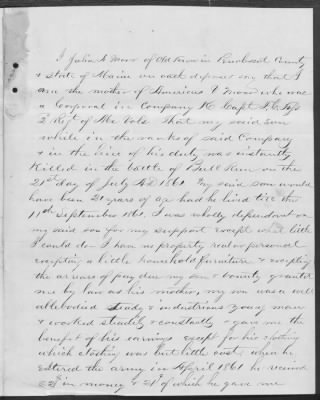 I Julia A Moor of Old Town in Penobscot County
& State of Maine on oath depose & say that I
am the mother of Americus V Moor who was
a Corporal in Company K Capt
2 Regt of Me Vols That my said Son
while in the ranks of said Company
& in the line of his duty was instantly
Killed in the battle of Bull Run on the
21st day of July AD 1861. My said son would
have been 21 years of age had he lived till the
11th September 1861. I was wholly dependant on
my said son for my support except what little
I could do. I have no property real or personal
excepting a little household furniture & excepting
the arrears of pay due my son & bounty granted
me by law as his mother, my son was a well
ablebodied steady & industrious young man
& worked steadily & constantly & gave me the
benefit of his earnings except for his clothing
which clothing was but little cost, when he
entered the army in April 1861 he received
22$ in money & 21$ of which he gave me